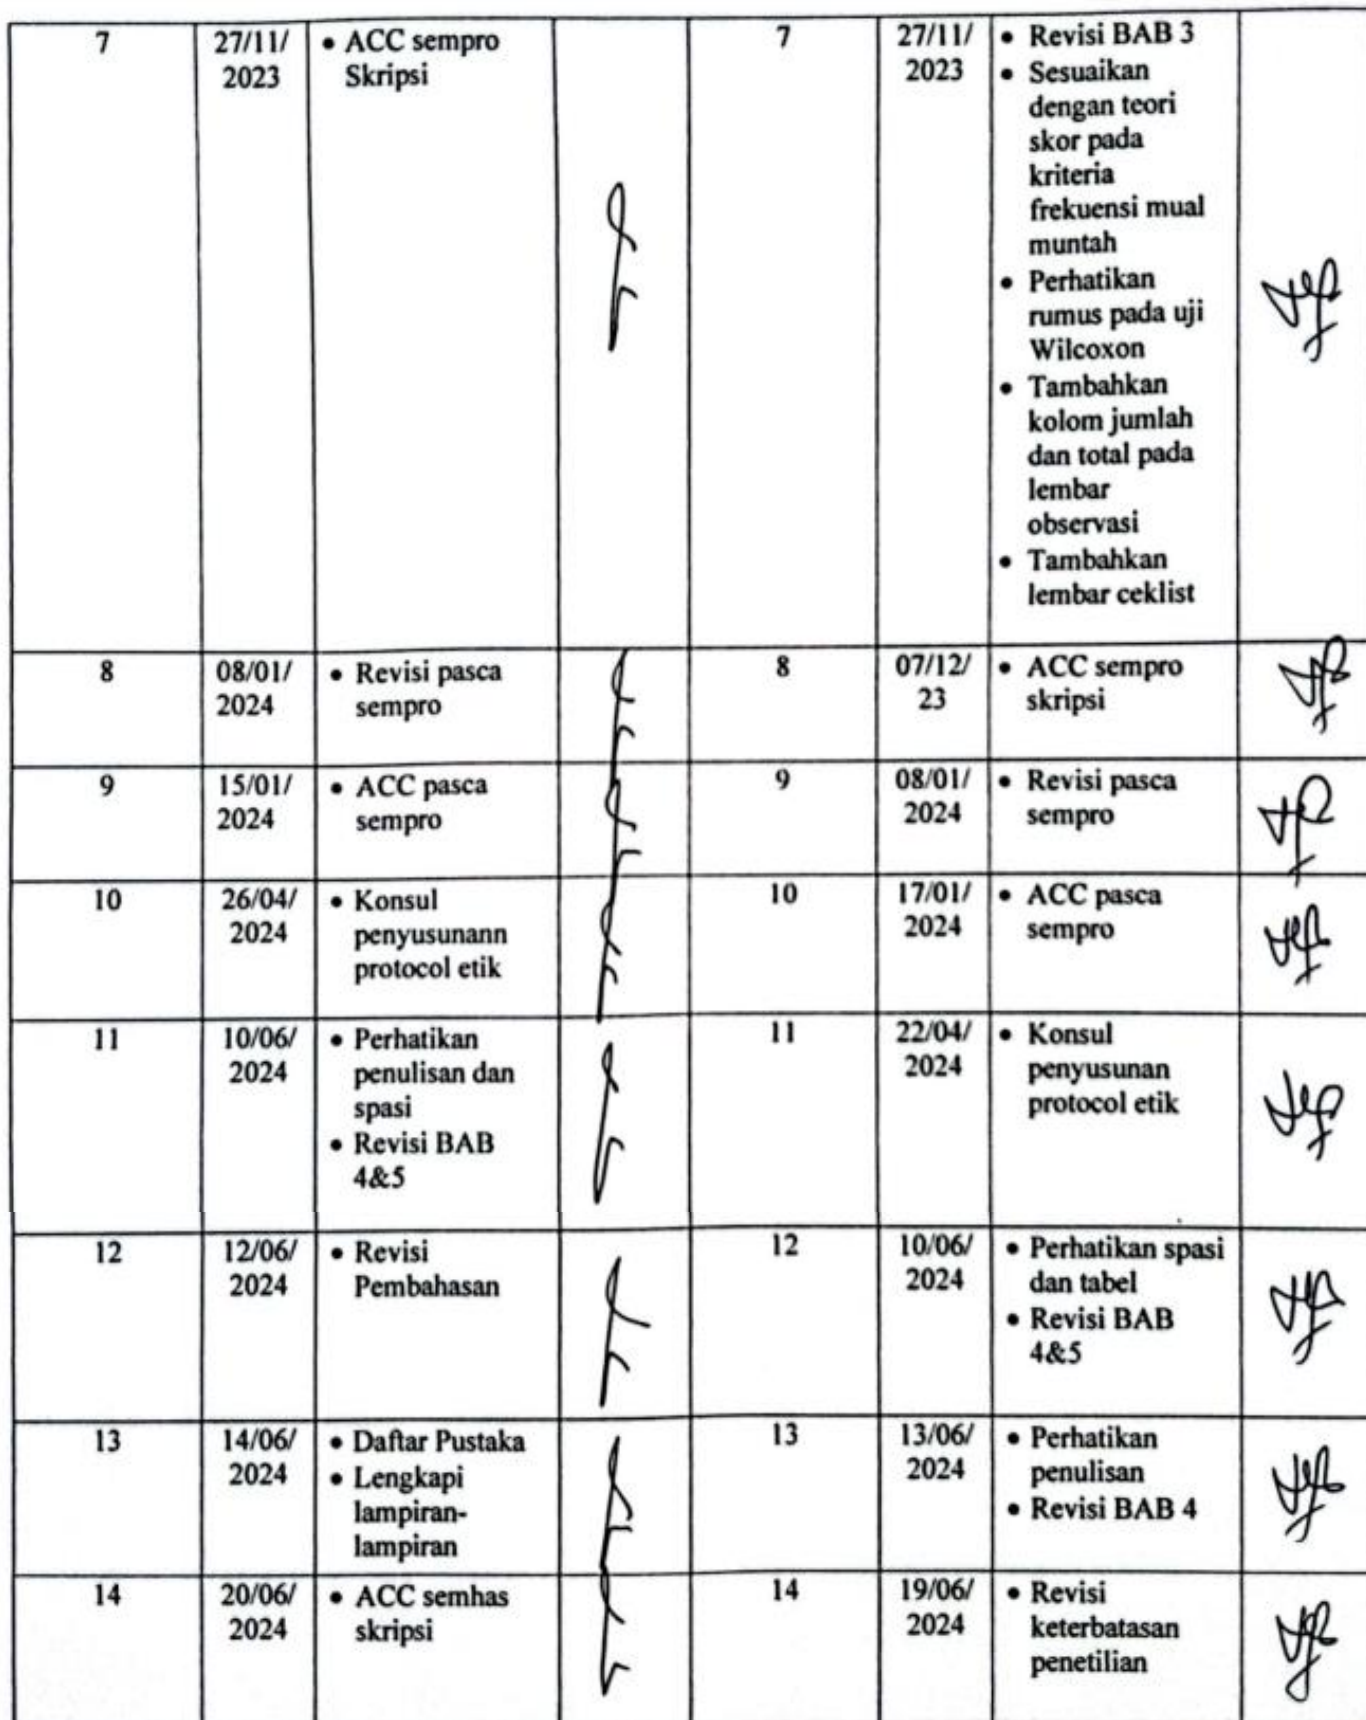 7
27/11/
2023
• ACC sempro
Skripsi
7
27/11/
2023
• Revisi BAB 3
• Sesuaikan
dengan teori
skor pada
kriteria
frekuensi mual
muntah
• Perhatikan
rumus pada uji
Wilcoxon
• Tambahkan
kolom jumlah
dan total pada
lembar
observasi
• Tambahkan
lembar ceklist
8
08/01/
2024
• Revisi pasca
sempro
8
07/12/
23
• ACC sempro
skripsi
9
15/01/
2024
• ACC pasca
sempro
9
08/01/
2024
• Revisi pasca
sempro
10
26/04/
2024
• Konsul
penyusunann
protocol etik
10
17/01/
2024
• ACC pasca
sempro
11
10/06/
2024
• Perhatikan
penulisan dan
spasi
• Revisi BAB
4&5
11
22/04/
2024
• Konsul
penyusunan
protocol etik
12
12/06/
2024
• Revisi
Pembahasan
12
10/06/
2024
• Perhatikan spasi
dan tabel
• Revisi BAB
4&5
13
14/06/
2024
• Daftar Pustaka
• Lengkapi
lampiran-
lampiran
13
13/06/
2024
• Perhatikan
penulisan
• Revisi BAB 4
14
20/06/
2024
• ACC semhas
skripsi
14
19/06/
2024
• Revisi
keterbatasan
penetilian